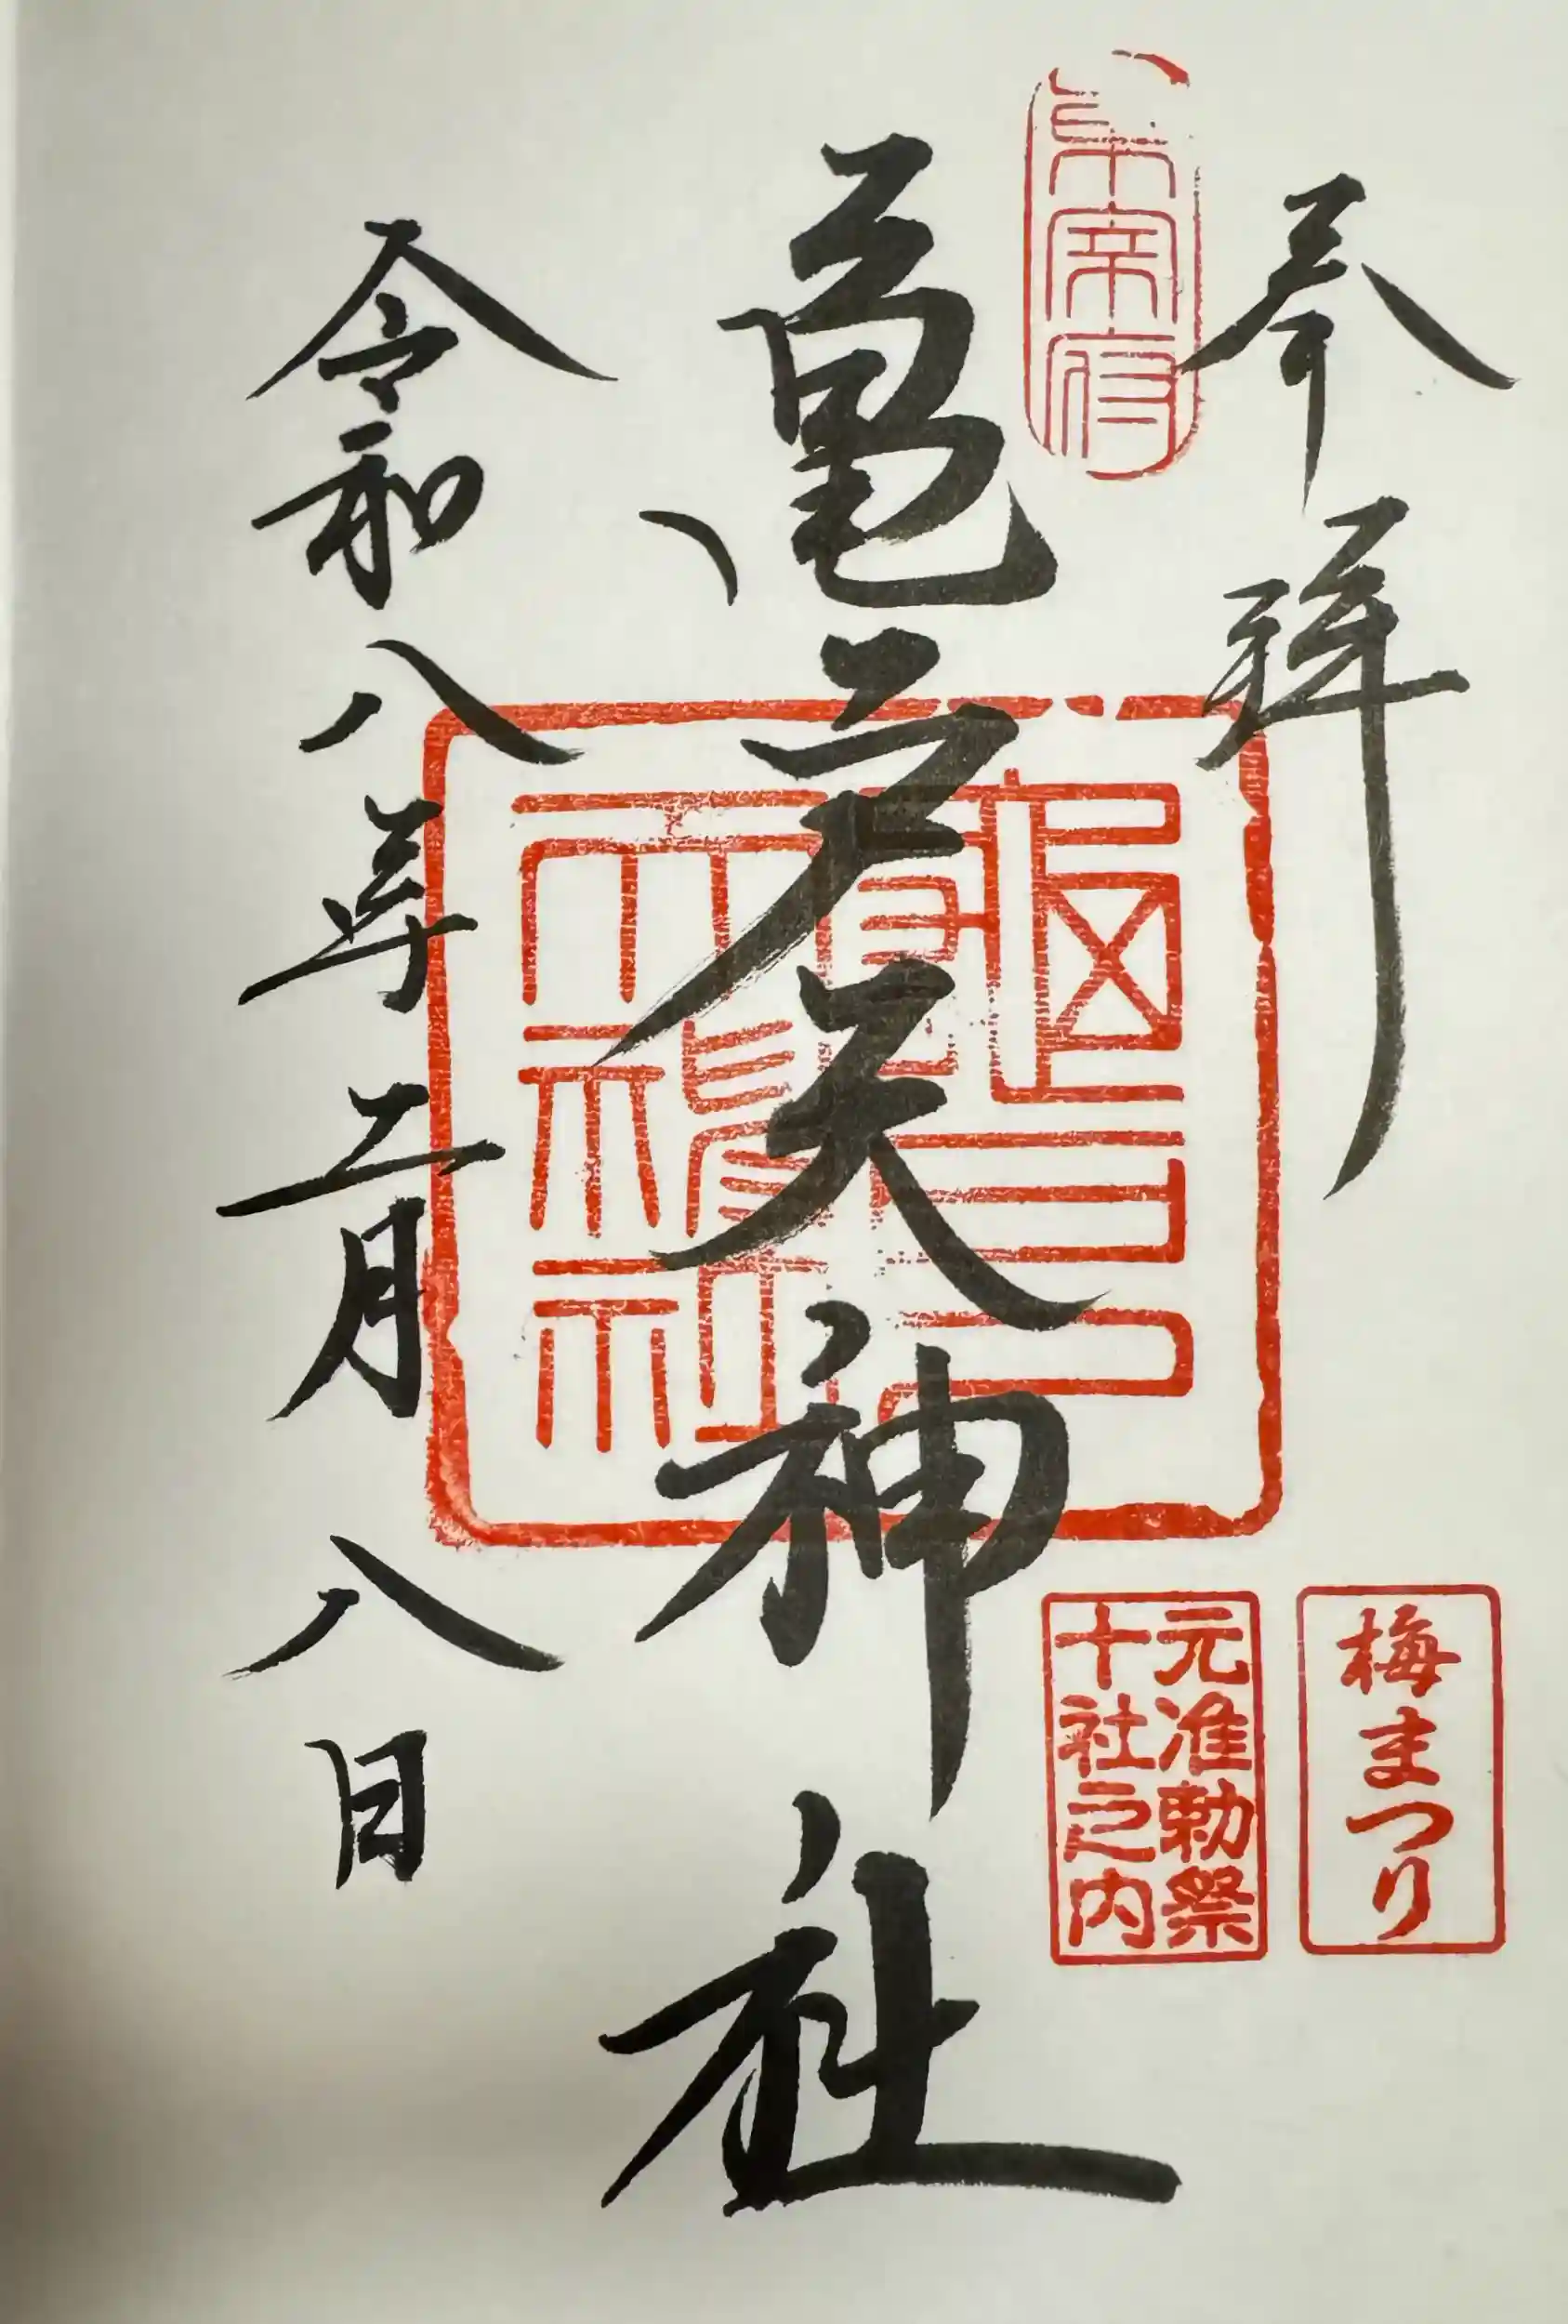 奉拝
東宰府
亀戸天神社
亀戸天神社
元准勅祭
十社之内
梅まつり
令和八年二月八日